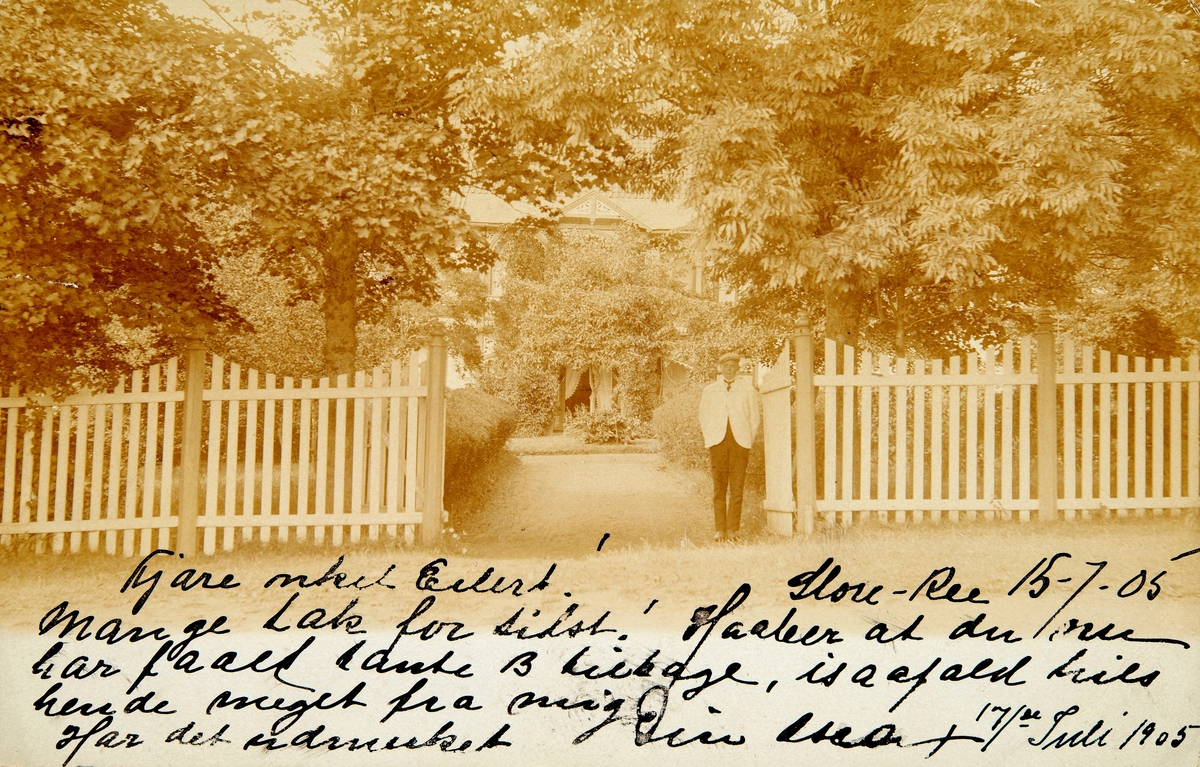 Kjære onkel Eilert! Store-Ree 15-7-05
Mange tak for sidst! Haaber at du nu
har faaet tante B tilbage, isaafald hils
hende meget fra mig
Har det udmerket Din 17/7 Juli 1905